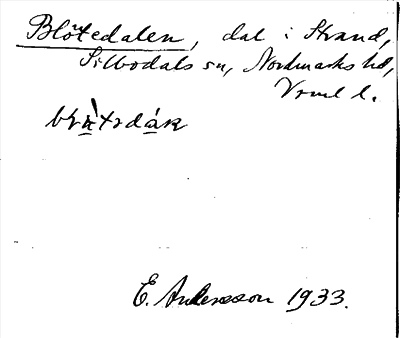 Blötedalen, dal i Strand,
Silbodals sn, Nordmarks hd,
Vrml l.
E. Andersson 1933.